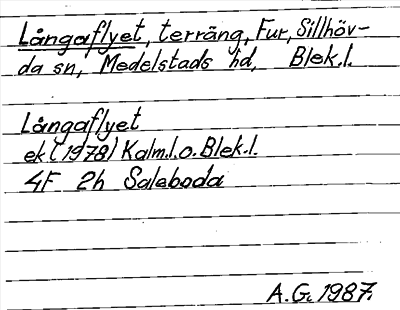 Långaflyet, terräng, Fur, Sillhöv-
da sn, Medelstads hd, Blek.l.
Långaflyet
ek (1978) Kalm.l.o. Blek.l.
4F 2h Saleboda
A.G. 1987.